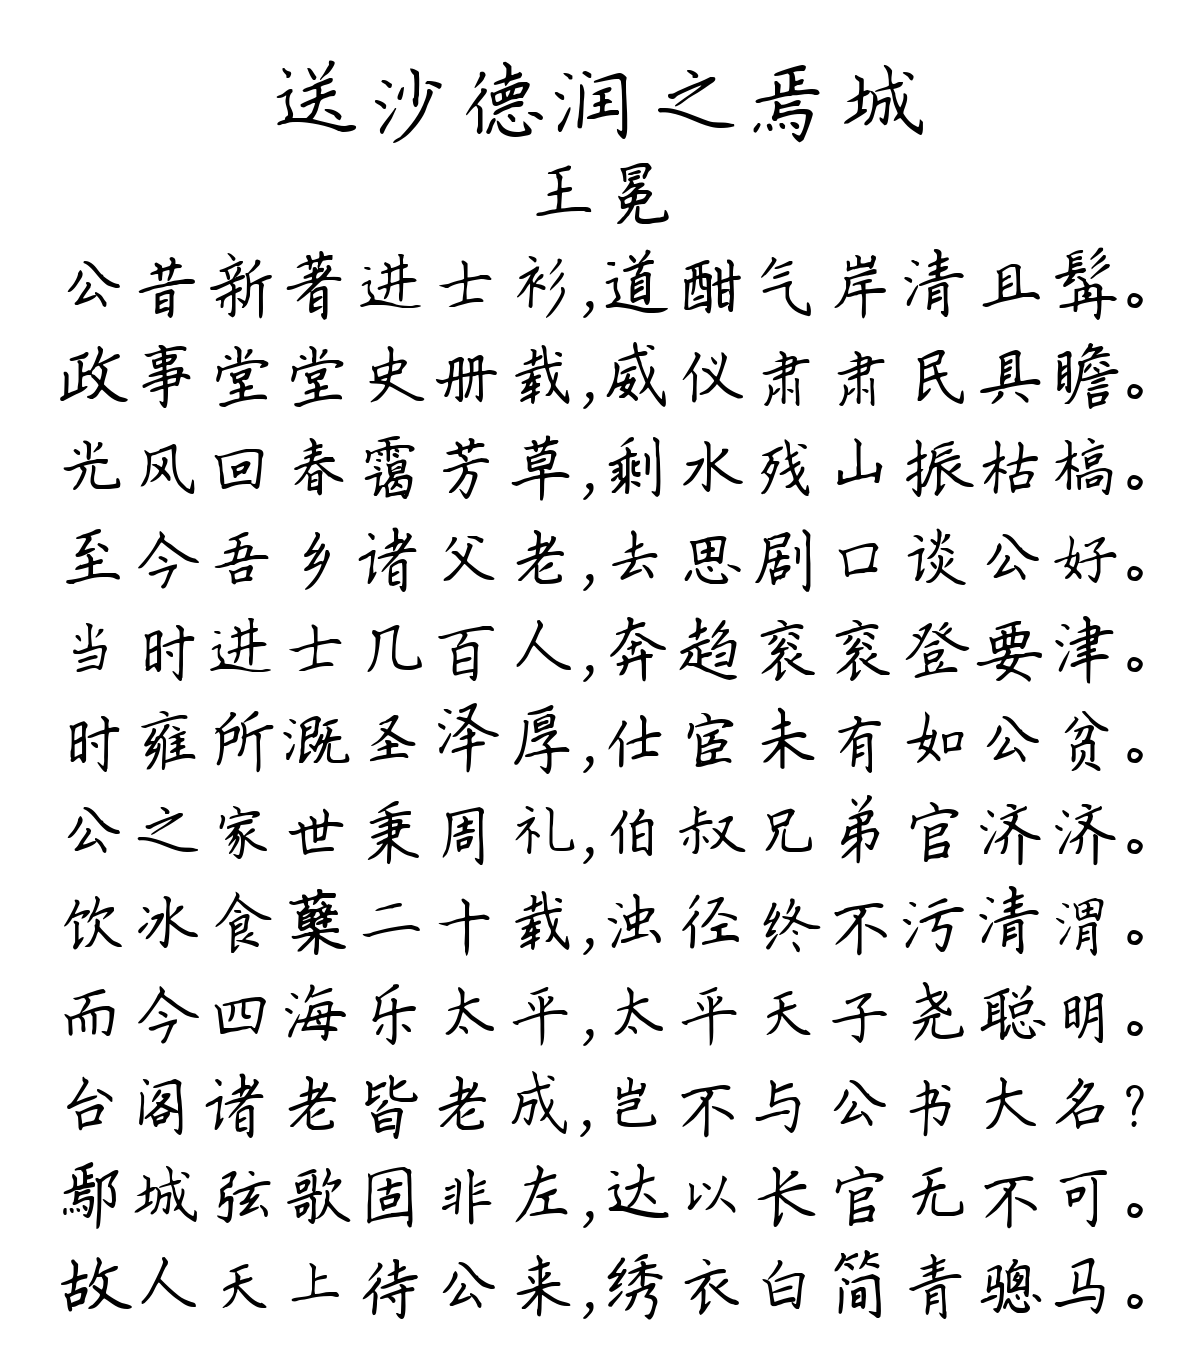 送沙德润之焉城
王冕
公昔新著进士衫,道酣气岸清且髯。
政事堂堂史册载,威仪肃肃民具瞻。
光风回春霭芳草,剩水残山振枯槁。
至今吾乡诸父老,去思剧口谈公好。
当时进士几百人,奔趋衮衮登要津。
时雍所溉圣泽厚,仕宦未有如公贫。
公之家世秉周礼,伯叔兄弟官济济。
饮冰食蘖二十载,浊径终不污清渭。
而今四海乐太平,太平天子尧聪明。
台阁诸老皆老成,岂不与公书大名?
鄢城弦歌固非左,达以长官无不可。
故人天上待公来,绣衣白简青骢马。